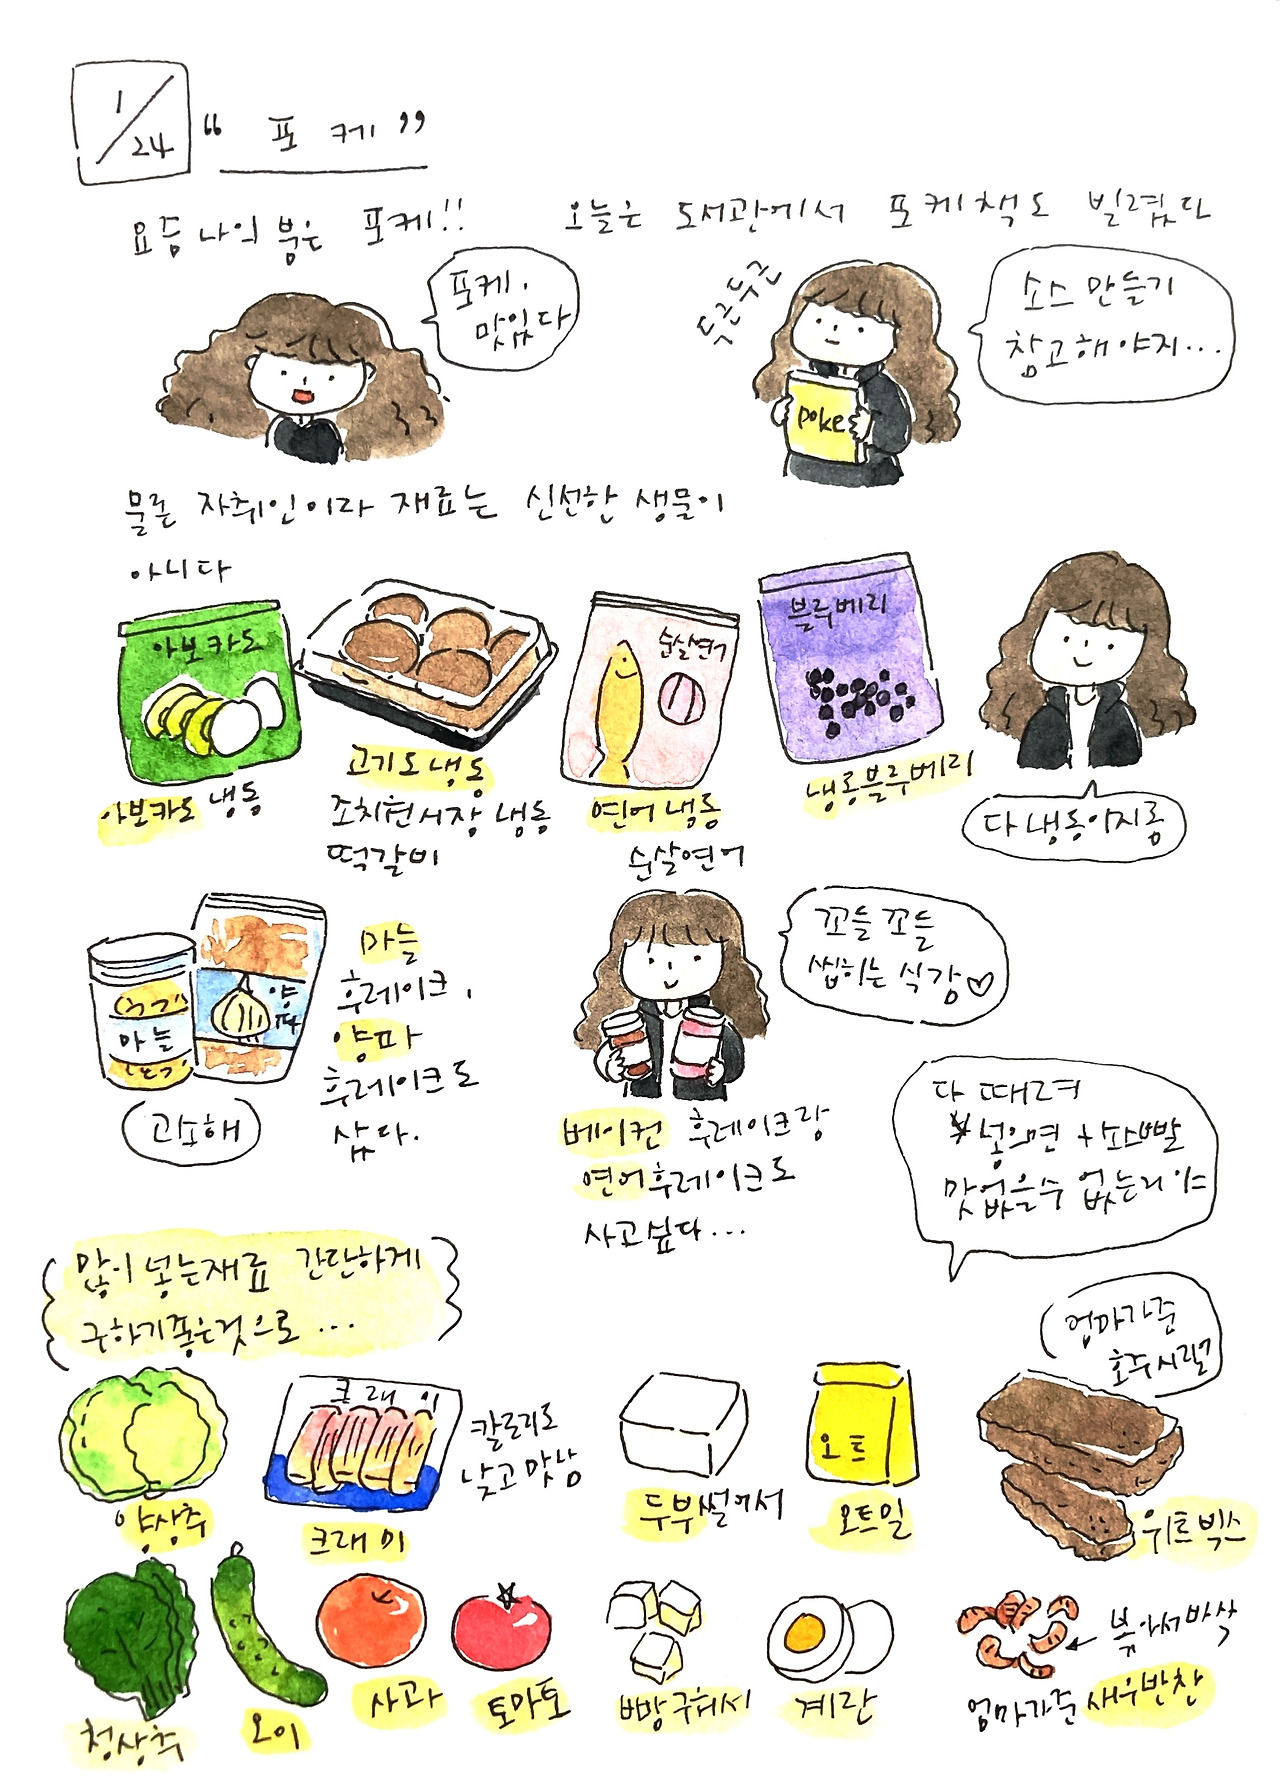 1/24
“ 포 케 ”
요즘 나의 붐은 포케!!
오늘은 도서관에서 포케책도 빌렸다
포케.
맛있다
두근두근
poke
소스 만들기
참고해야지...
물론 자취인이라 재료는 신선한 생물이
아니다
아보카도
순살연어
블루베리
아보카도 냉동
고기도 냉동
조치원시장 냉동
떡갈비
연어 냉동
순살연어
냉동블루베리
다 냉동이지롱
마늘
양파
고소해
마늘
후레이크,
양파
후레이크도
샀다.
꼬들꼬들
씹히는 식감♡
베이컨 후레이크랑
연어후레이크도
사고싶다...
다 때려
넣으면 + 소스빨
맛없을수 없는거야
많이 넣는재료 간단하게
구하기좋은것으로 ...
엄마가준
호주시리얼
크래미
칼로리도
낮고 맛남
오트
양상추
크래미
두부썰어서
오트밀
위트빅스
청상추
오이
사과
토마토
빵구워서
계란
볶아서바삭
엄마가준 새우반찬